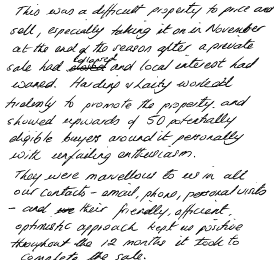 This was a difficult property to price and
sell, especially taking it on in November
at the end of the season after a private
sale had collapsed and local interest had
waned. Harding Laity worked
tirelessly to promote the property, and
showed upwards of 50 potentially
eligible buyers around it personally
with unfailing enthusiasm.
They were marvellous to us in all
our contacts - email, phone, personal visits
- and their friendly, efficient,
optimistic approach kept us positive
throughout the 12 months it took to
complete the sale.